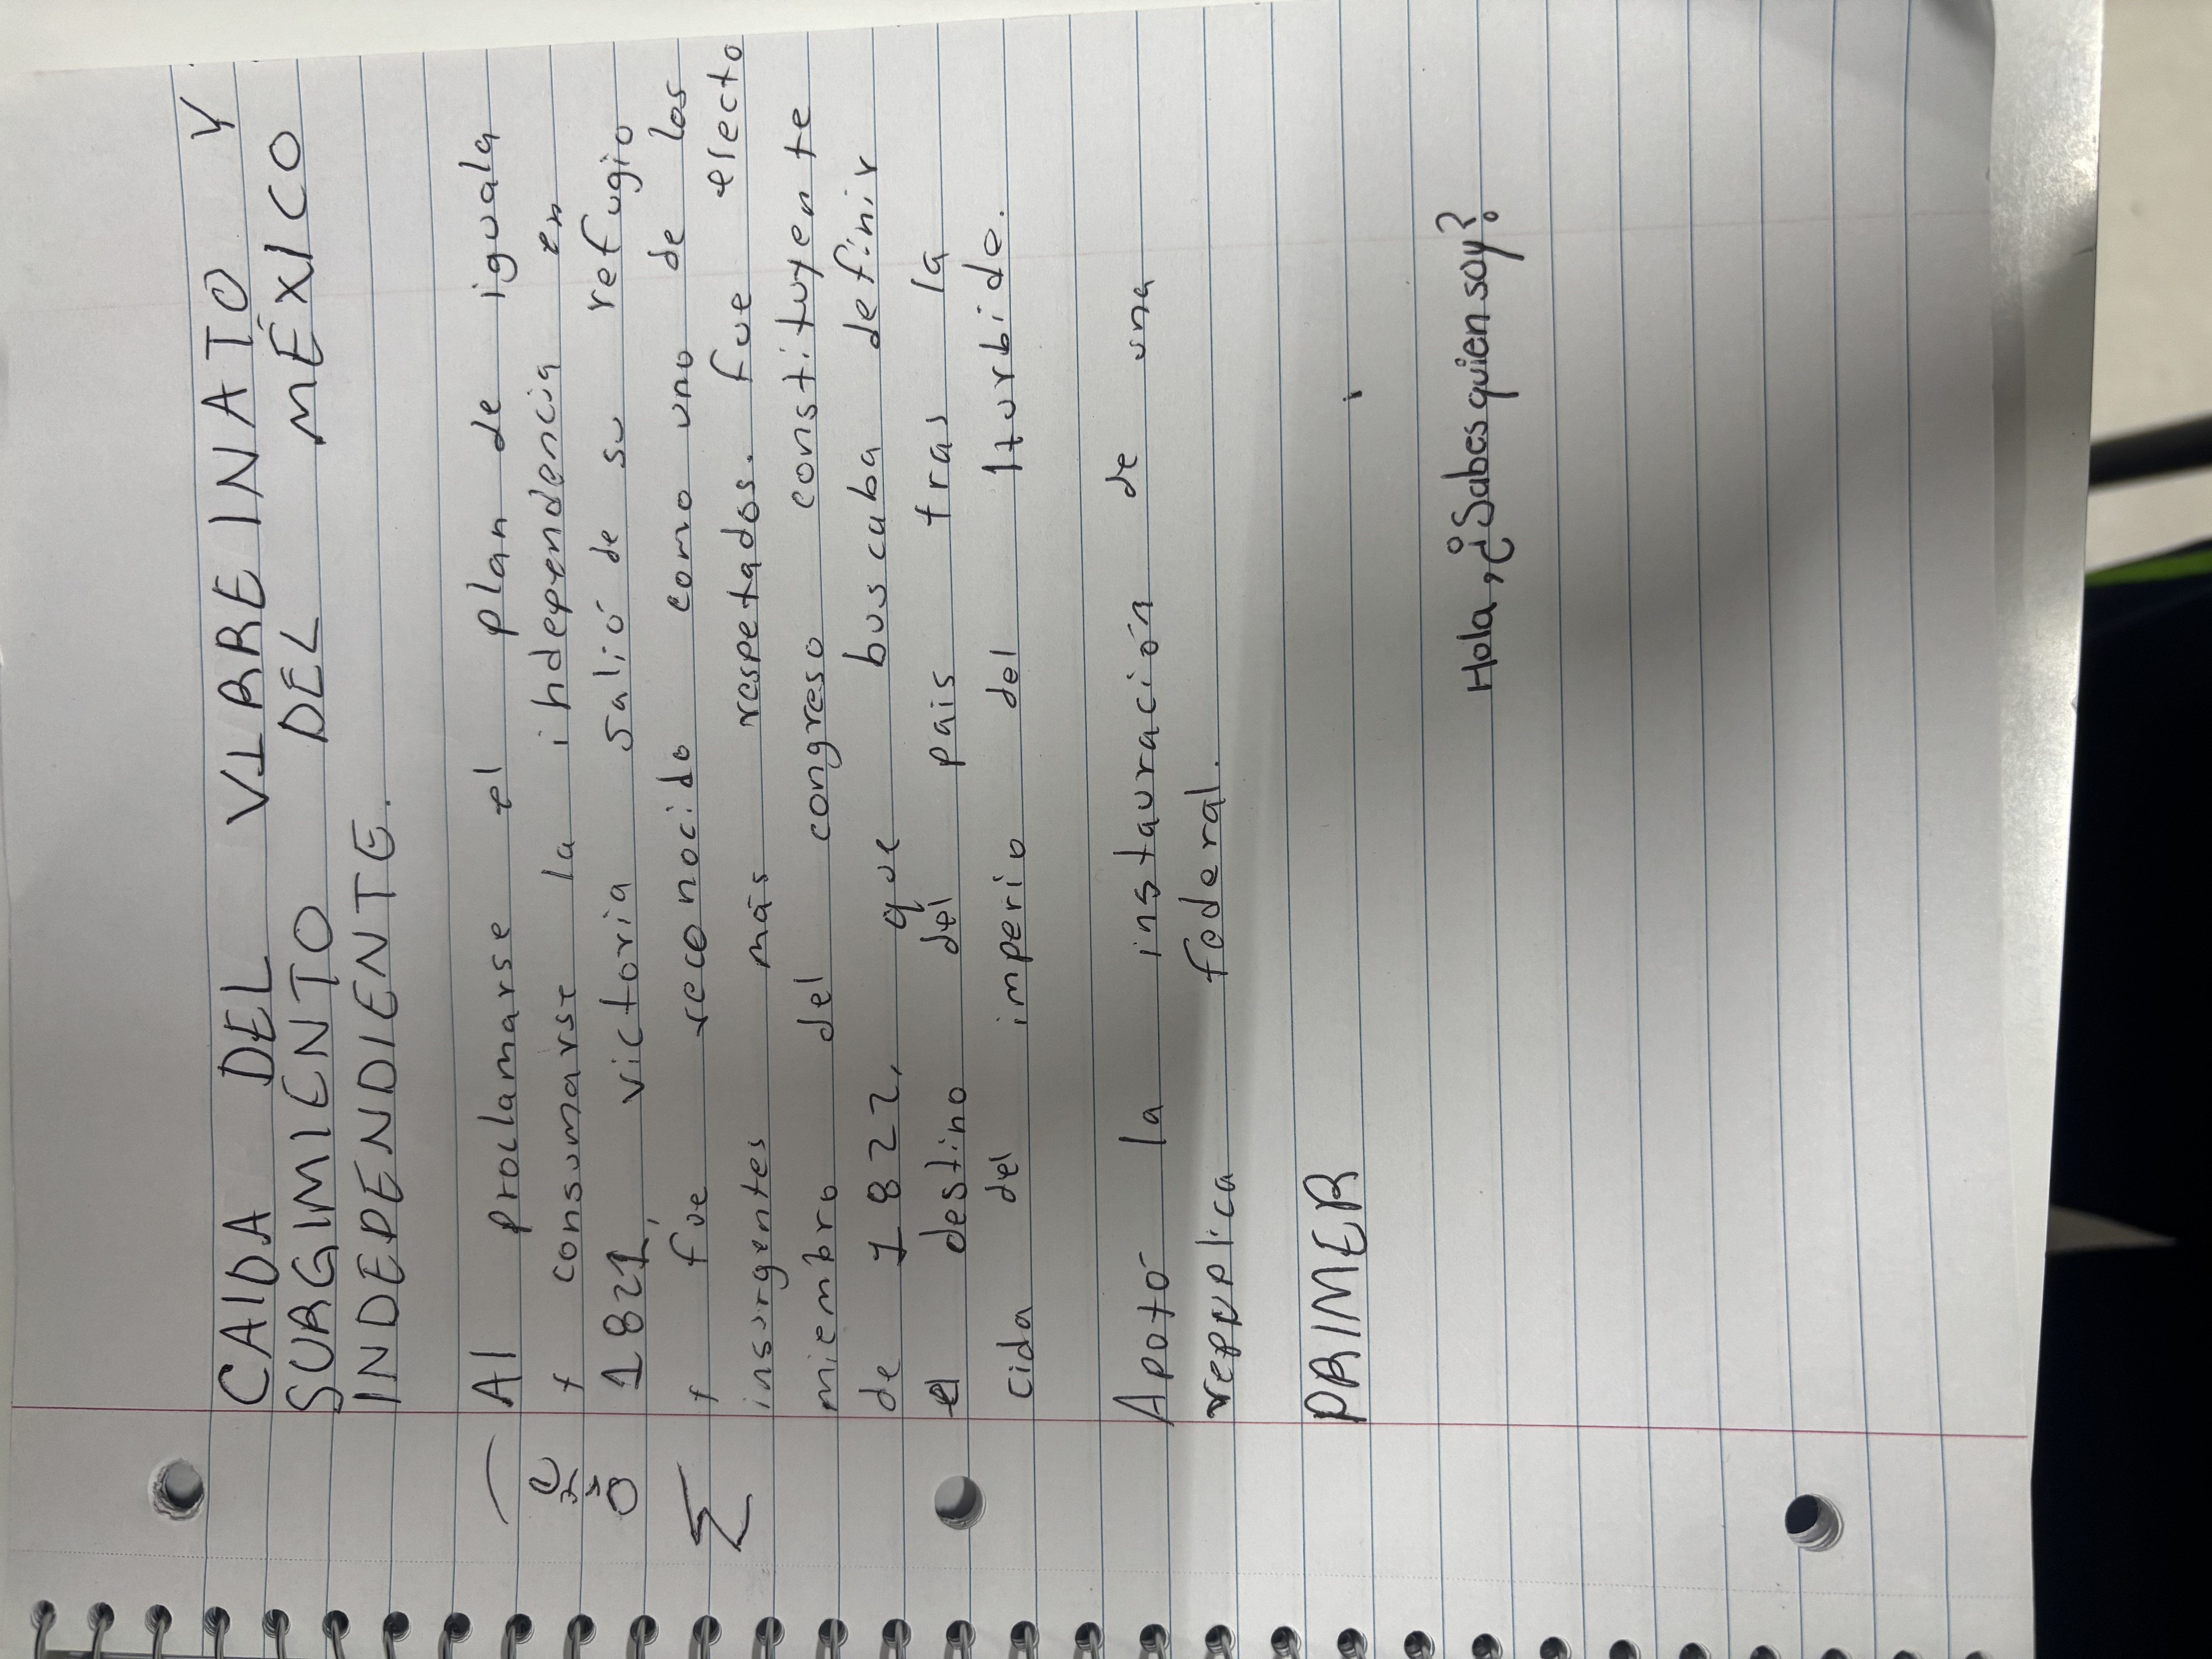 CAIDA DEL VIRREINATO Y
SURGIMIENTO DEL MÉXICO
INDEPENDIENTE.
Al proclamarse el plan de iguala
y consumarse la independencia en
1821, victoria salió de su refugio
y fue reconocido como uno de los
insurgentes más respetados. fue electo
miembro del congreso constituyente
de 1822, que buscaba definir
el destino del pais tras la
cida del imperio del Iturbide.
Apotó la instauración de una
reppplica federal.
PRIMER
Hola, ¿Sabes quien soy?